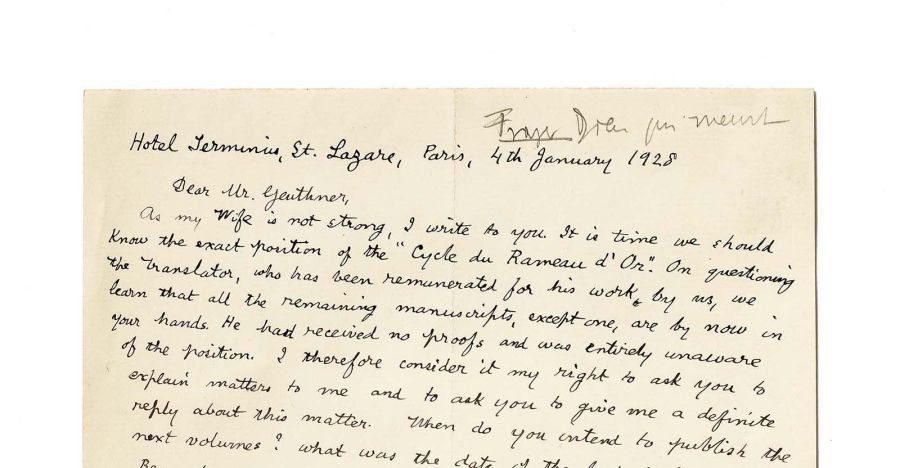 Frazer Dieu qui meurt
Hotel Terminus, St. Lazare, Paris, 4th January 1928
Dear Mr. Geuthner,
As my Wife is not strong, I write to you. It is time we should
know the exact position of the "Cycle du Rameau d'Or". On questioning
the translator, who has been remunerated for his work, by us, we
learn that all the remaining manuscripts, except one, are by now in
your hands. He had received no proofs and was entirely unaware
of the position. I therefore consider it my right to ask you to
explain matters to me and to ask you to give me a definite
reply about this matter. When do you intend to publish the
next volumes? what was the date of the